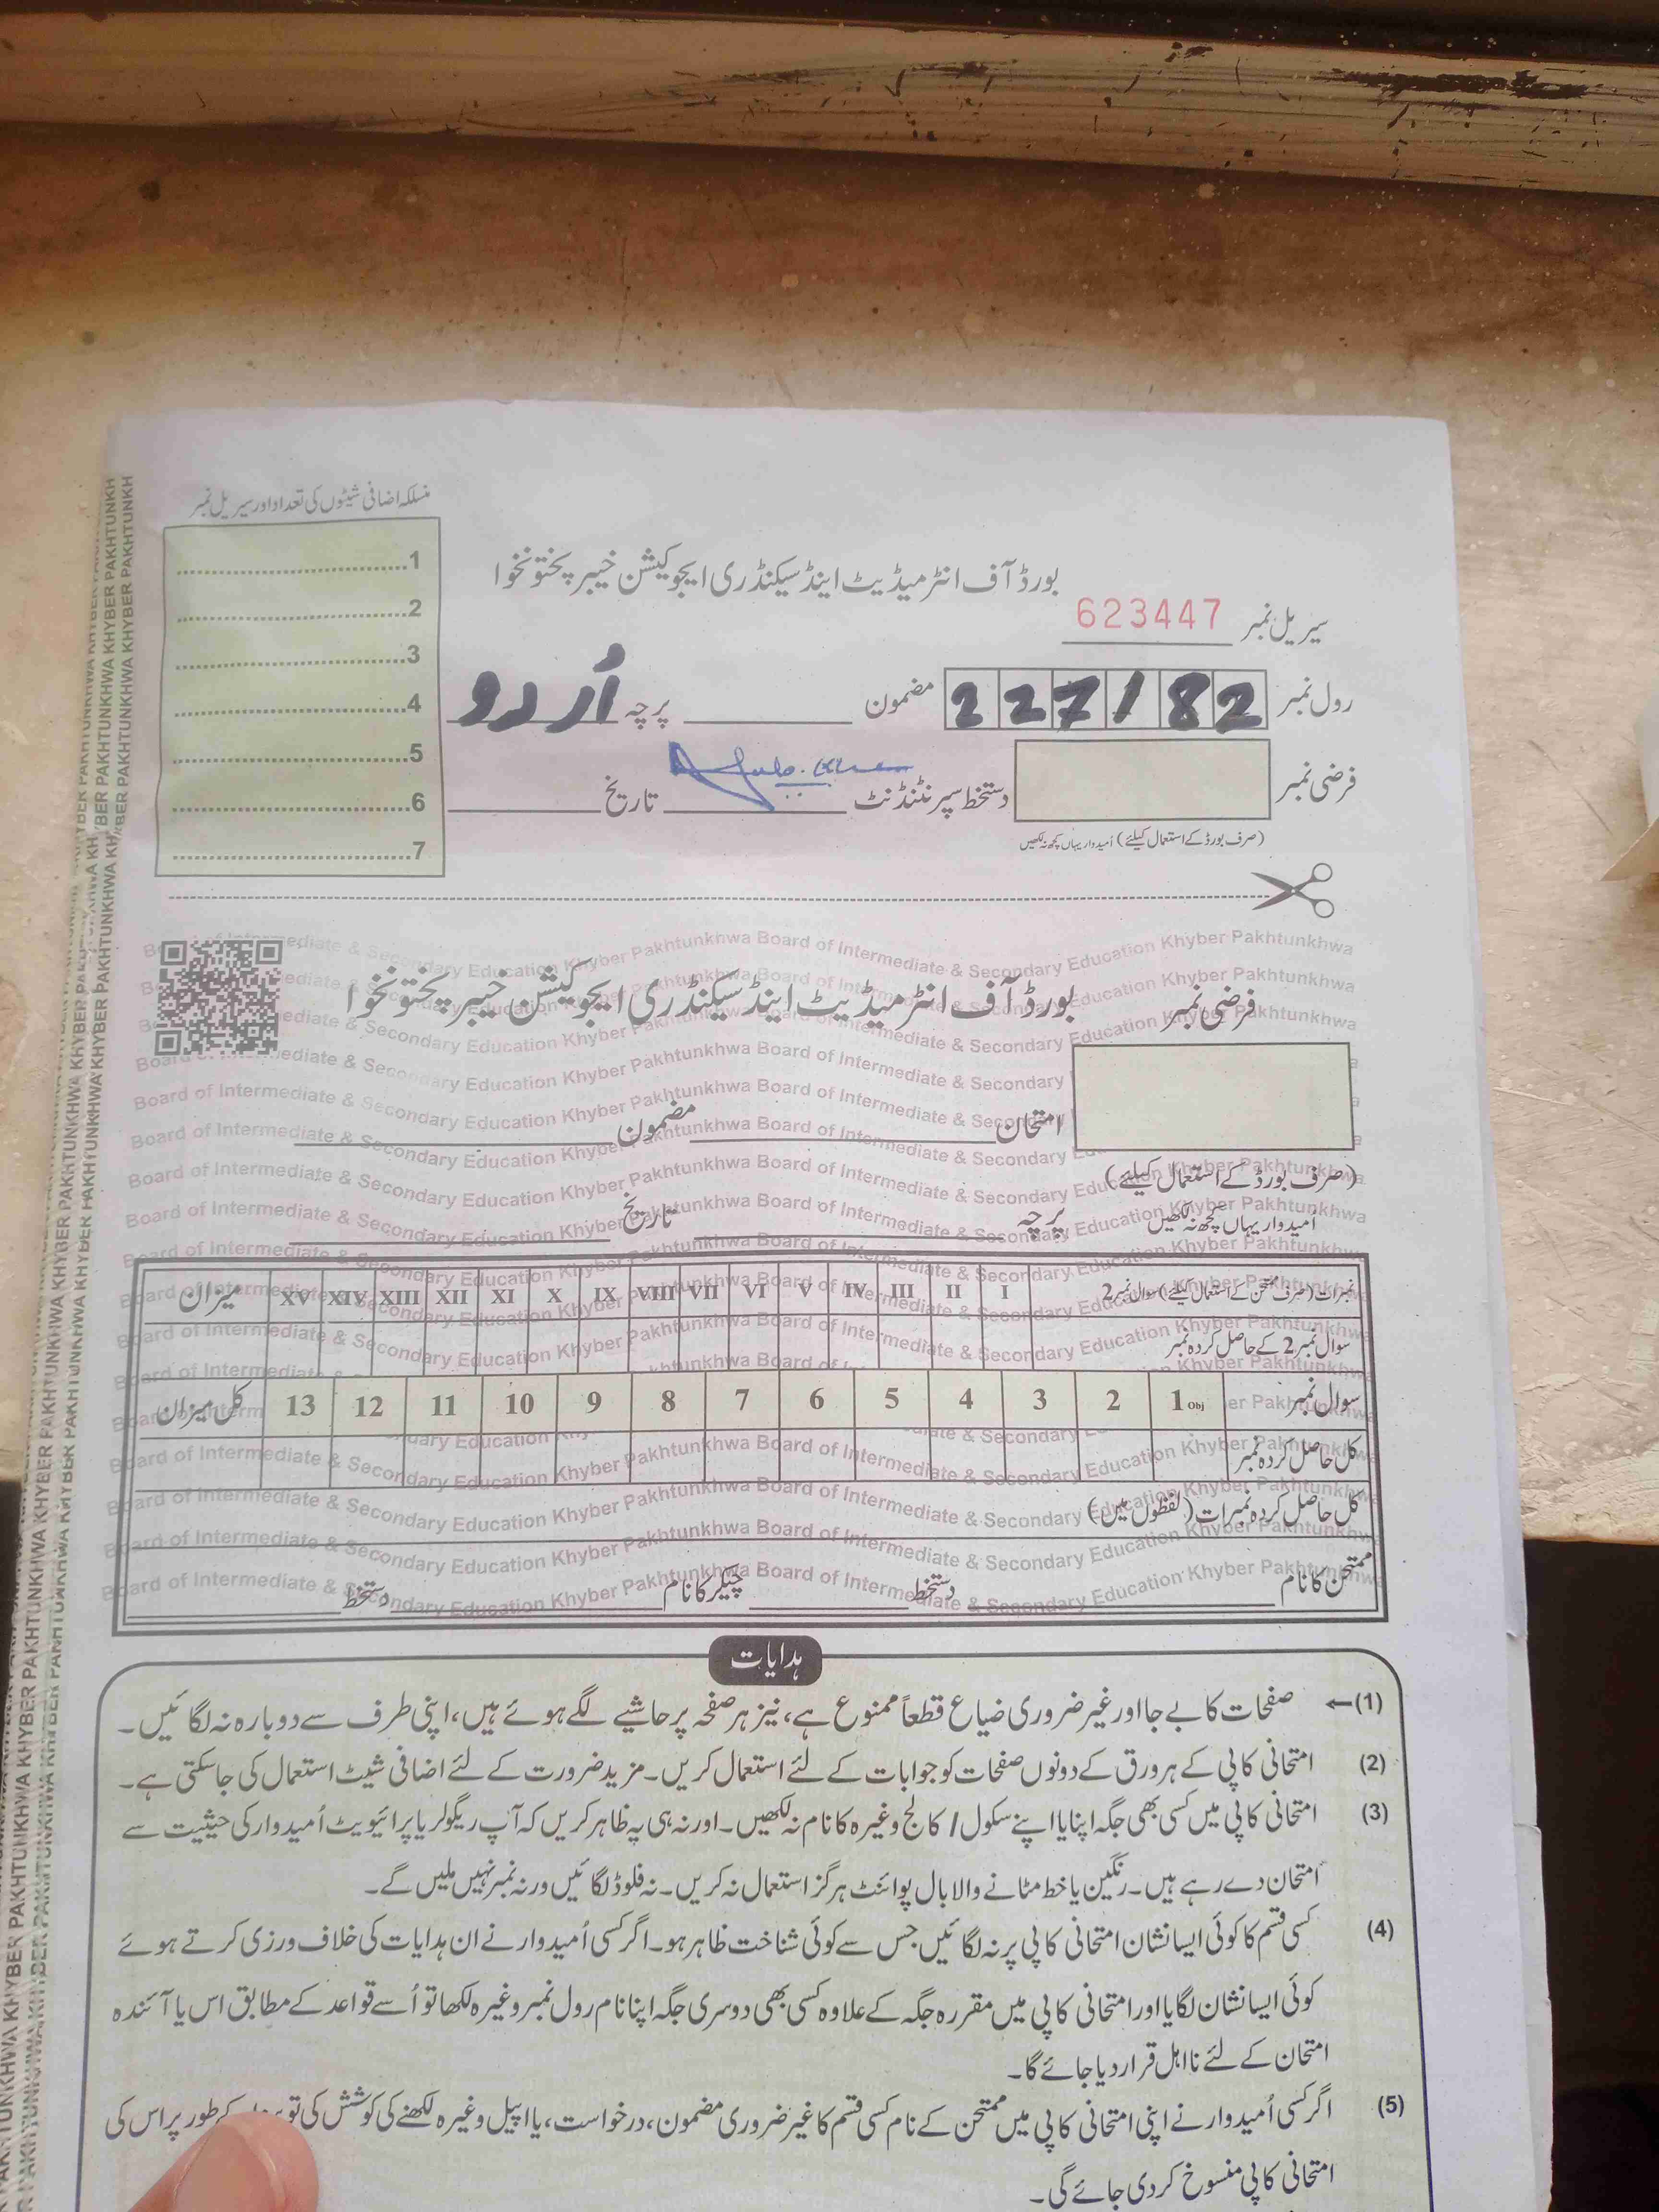 منسلکہ اضافی شیٹوں کی تعداد اور سیریل نمبر
1
2
3
4
5
6
7
بورڈ آف انٹرمیڈیٹ اینڈ سیکنڈری ایجوکیشن خیبر پختونخوا
سیریل نمبر 623447
رول نمبر 227182 مضمون پرچہ اُردو
فرضی نمبر دستخط سپرنٹنڈنٹ تاریخ
(صرف بورڈ کے استعمال کیلئے) اُمیدوار یہاں کچھ نہ لکھیں
فرضی نمبر بورڈ آف انٹرمیڈیٹ اینڈ سیکنڈری ایجوکیشن خیبر پختونخوا
امتحان مضمون
(صرف بورڈ کے استعمال کیلئے)
اُمیدوار یہاں کچھ نہ لکھیں پرچہ تاریخ
نمبرات (صرف ممتحن کے استعمال کیلئے) سوال نمبر 2 I II III IV V VI VII VIII IX X XI XII XIII XIV XV میزان
سوال نمبر 2 کے حاصل کردہ نمبر
سوال نمبر 1 Obj 2 3 4 5 6 7 8 9 10 11 12 13 کل میزان
کل حاصل کردہ نمبر
کل حاصل کردہ نمبرات (لفظوں میں)
ممتحن کا نام دستخط چیکر کا نام دستخط
ہدایات
(1)← صفحات کا بے جا اور غیر ضروری ضیاع قطعاً ممنوع ہے، نیز ہر صفحہ پر حاشیے لگے ہوئے ہیں، اپنی طرف سے دوبارہ نہ لگائیں۔
(2) امتحانی کاپی کے ہر ورق کے دونوں صفحات کو جوابات کے لئے استعمال کریں۔ مزید ضرورت کے لئے اضافی شیٹ استعمال کی جاسکتی ہے۔
(3) امتحانی کاپی میں کسی بھی جگہ اپنا یا اپنے سکول / کالج وغیرہ کا نام نہ لکھیں۔ اور نہ ہی یہ ظاہر کریں کہ آپ ریگولر یا پرائیویٹ اُمیدوار کی حیثیت سے
امتحان دے رہے ہیں۔ رنگین یا خط مٹانے والا بال پوائنٹ ہرگز استعمال نہ کریں۔ نہ فلوڈ لگائیں ورنہ نمبر نہیں ملیں گے۔
(4) کسی قسم کا کوئی ایسا نشان امتحانی کاپی پر نہ لگائیں جس سے کوئی شناخت ظاہر ہو۔ اگر کسی اُمیدوار نے ان ہدایات کی خلاف ورزی کرتے ہوئے
کوئی ایسا نشان لگایا اور امتحانی کاپی میں مقررہ جگہ کے علاوہ کسی بھی دوسری جگہ اپنا نام رول نمبر وغیرہ لکھا تو اُسے قواعد کے مطابق اس یا آئندہ
امتحان کے لئے نااہل قرار دیا جائے گا۔
(5) اگر کسی اُمیدوار نے اپنی امتحانی کاپی میں ممتحن کے نام کسی قسم کا غیر ضروری مضمون، درخواست، یا اپیل وغیرہ لکھنے کی کوشش کی تو کے طور پر اس کی
امتحانی کاپی منسوخ کردی جائے گی۔
Board of Intermediate & Secondary Education Khyber Pakhtunkhwa
KHYBER PAKHTUNKHWA